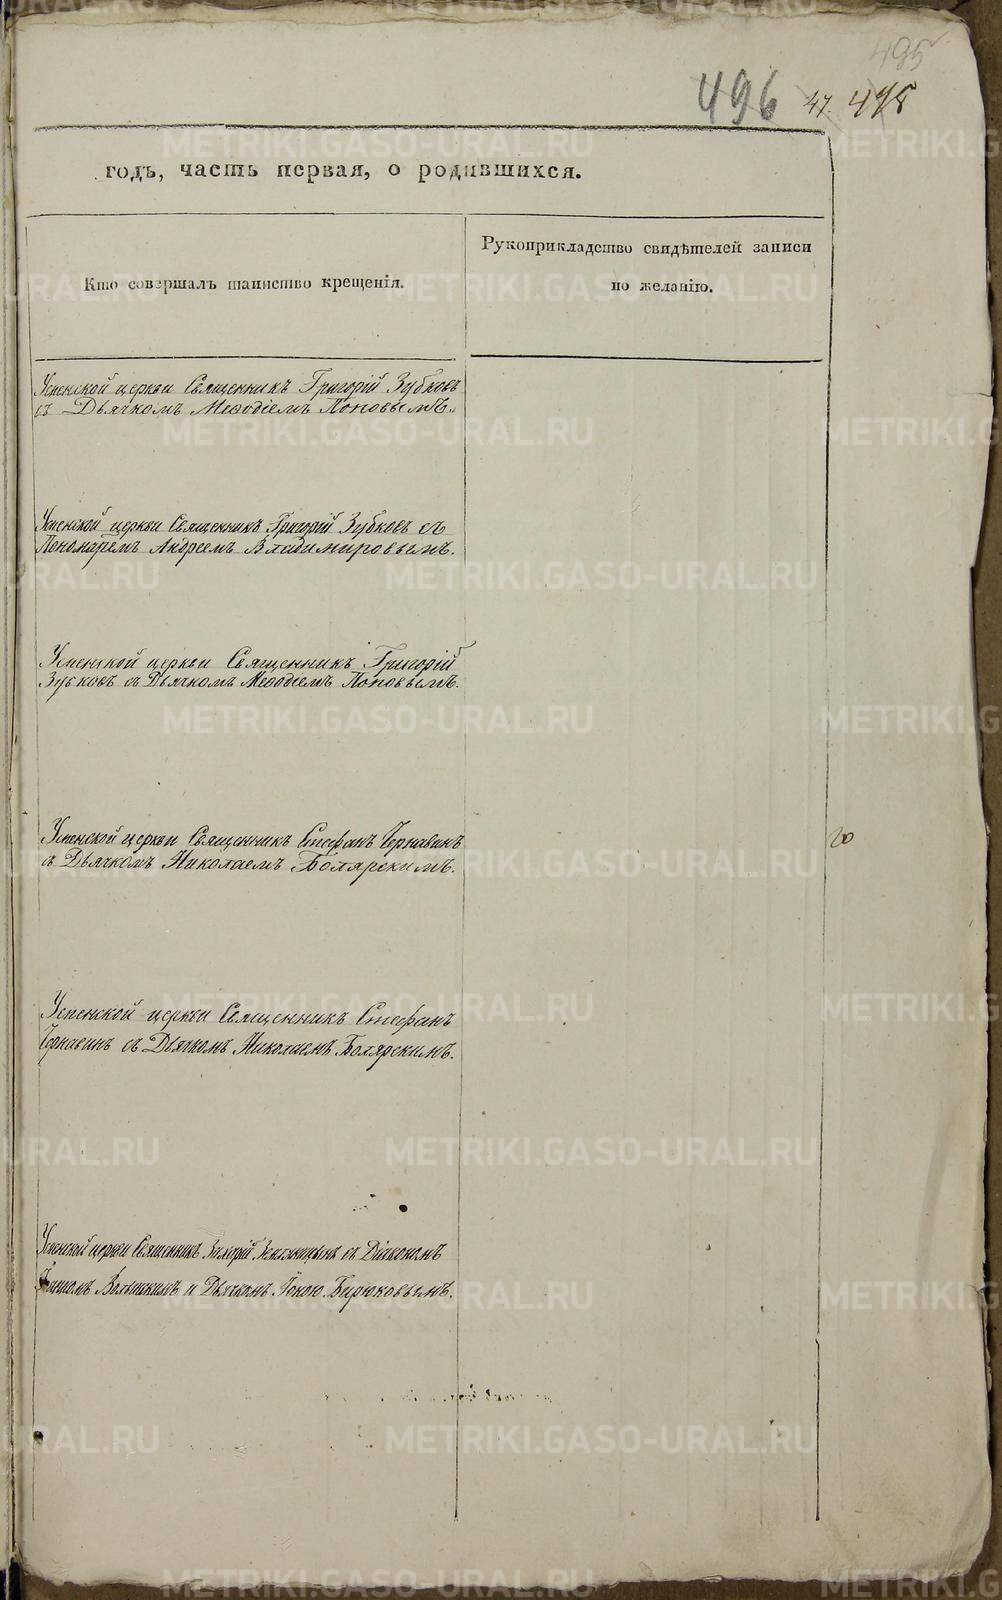 495
496 47. 478
годъ, часть первая, о родившихся.
Кто совершалъ таинство крещенія.
Рукоприкладство свидѣтелей записи
по желанію.
Успенской церкви Священникъ Григорій Зубковъ
съ Дьячкомъ Меѳодіемъ Поповымъ.
Успенской церкви Священникъ Григорій Зубковъ съ
Пономарёмъ Андреемъ Владимировымъ.
Успенской церкви Священникъ Григорій
Зубковъ съ Дьячкомъ Меѳодіемъ Поповымъ.
Успенской церкви Священникъ Стефанъ Чернавинъ
съ Дьячкомъ Николаемъ Болярскимъ.
20
Успенской церкви Священникъ Стефанъ
Чернавинъ съ Дьячкомъ Николаемъ Болярскимъ.
Успенской церкви Священникъ съ Діакономъ
и Дьячкомъ Іоною Бирюковымъ.
METRIKI.GASO-URAL.RU